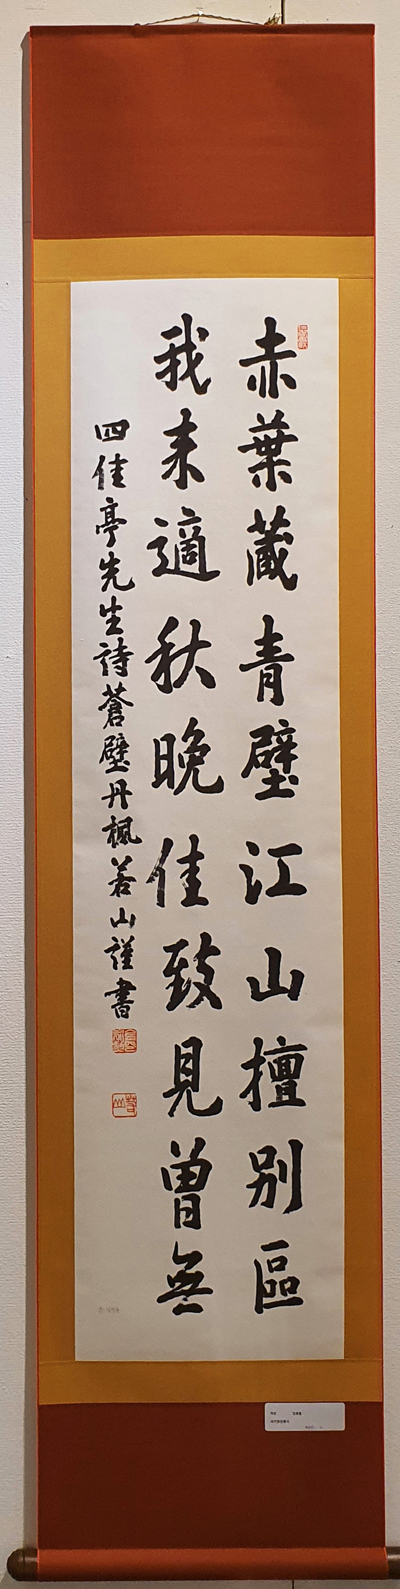 赤葉蔵青壁江山擅別區
我来適秋晩佳致見曽無
四佳亭先生詩蒼壁丹楓若山謹書